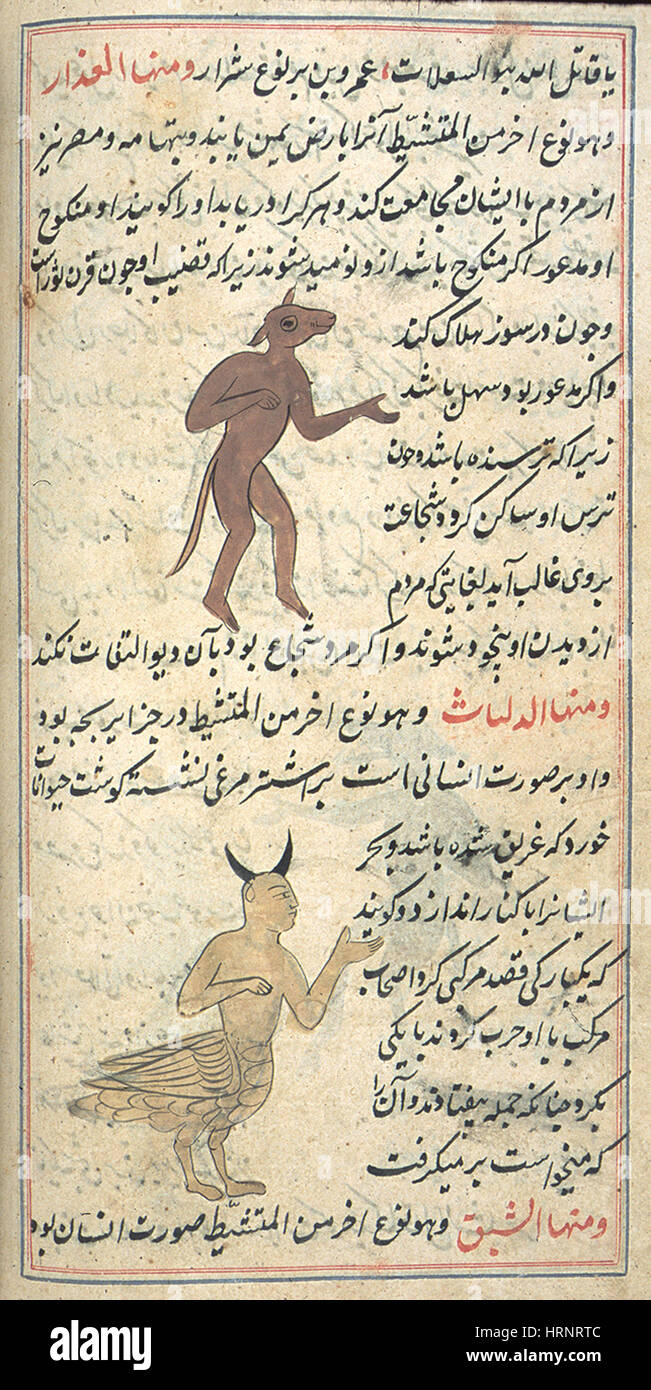 یا قاتل الله بنو السعلات، عمرو بن یربوع شرار ومنها الغذار
وهو نوع اخر من المتشیّط آنرا بارض یمن یابند و بتهامه و مصر نیز
از مردم با ایشان مجامعت کند و هر کرا دریابد او را کویند او منکوح
او مدعور اکر منکوح باشد ازو نومید شوند زیرا که قضیب او چون قرن ثور است
و چون درسوزد هلاک کند
و اکر مدعور بود سهل باشد
زیرا که ترسنده باشد و چون
ترس او ساکن کردد شجاعت
بروی غالب آید بغایتی که مردم
از دیدن او بیخود شوند و اکر مرد شجاع بود بآن دیو التفات نکند
ومنها الدلهاث وهو نوع اخر من المتشیط در جزایر بحر بود
و او بر صورت انسانی است بر اشتر مرغی نشسته کوشت حیوانات
خورد که غریق شده باشد و بحر
ایشانرا با کنار اندازد و کویند
که یکبار کی قصد مرکبی کرد اصحاب
مرکب با او حرب کردند بانکی
بکرد چنانکه جمله بیفتادند و آن را
که میخواست بر میکرفت
ومنها الشق وهو نوع اخر من المتشیّط صورت انسان بود
alamy
Image ID: HRNRTC
www.alamy.com